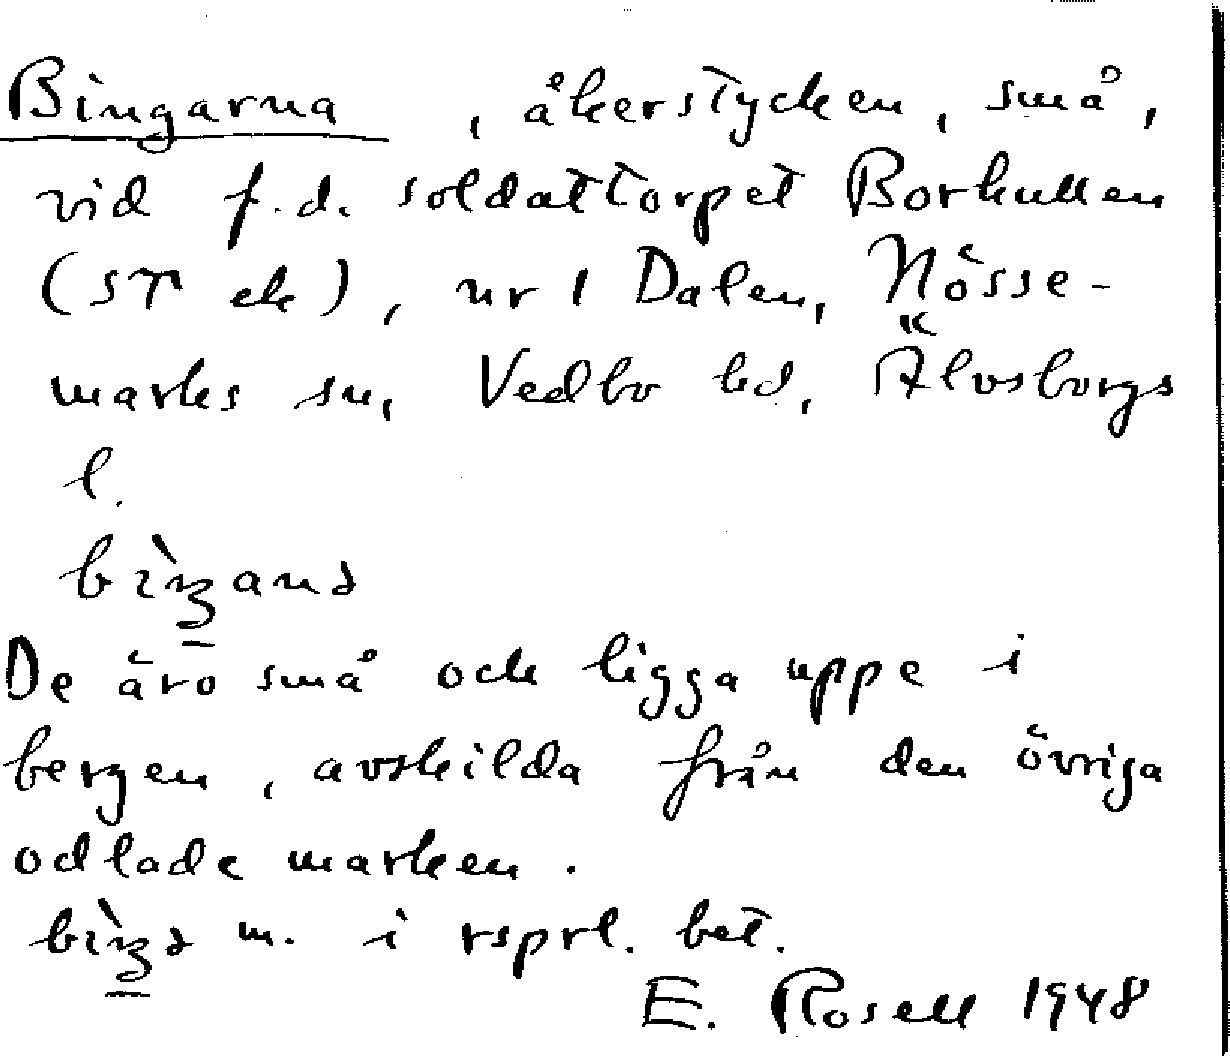 Bingarna, åkerstycken, små,
vid f.d. soldattorpet Borkullen
(ST ek), nr 1 Dalen, Nösse-
marks sn, Vedbo hd, Älvsborgs
l.
De äro små och ligga uppe i
bergen, avskilda från den övriga
odlade marken.
m. i rsprl. bet.
E. Rosell 1948